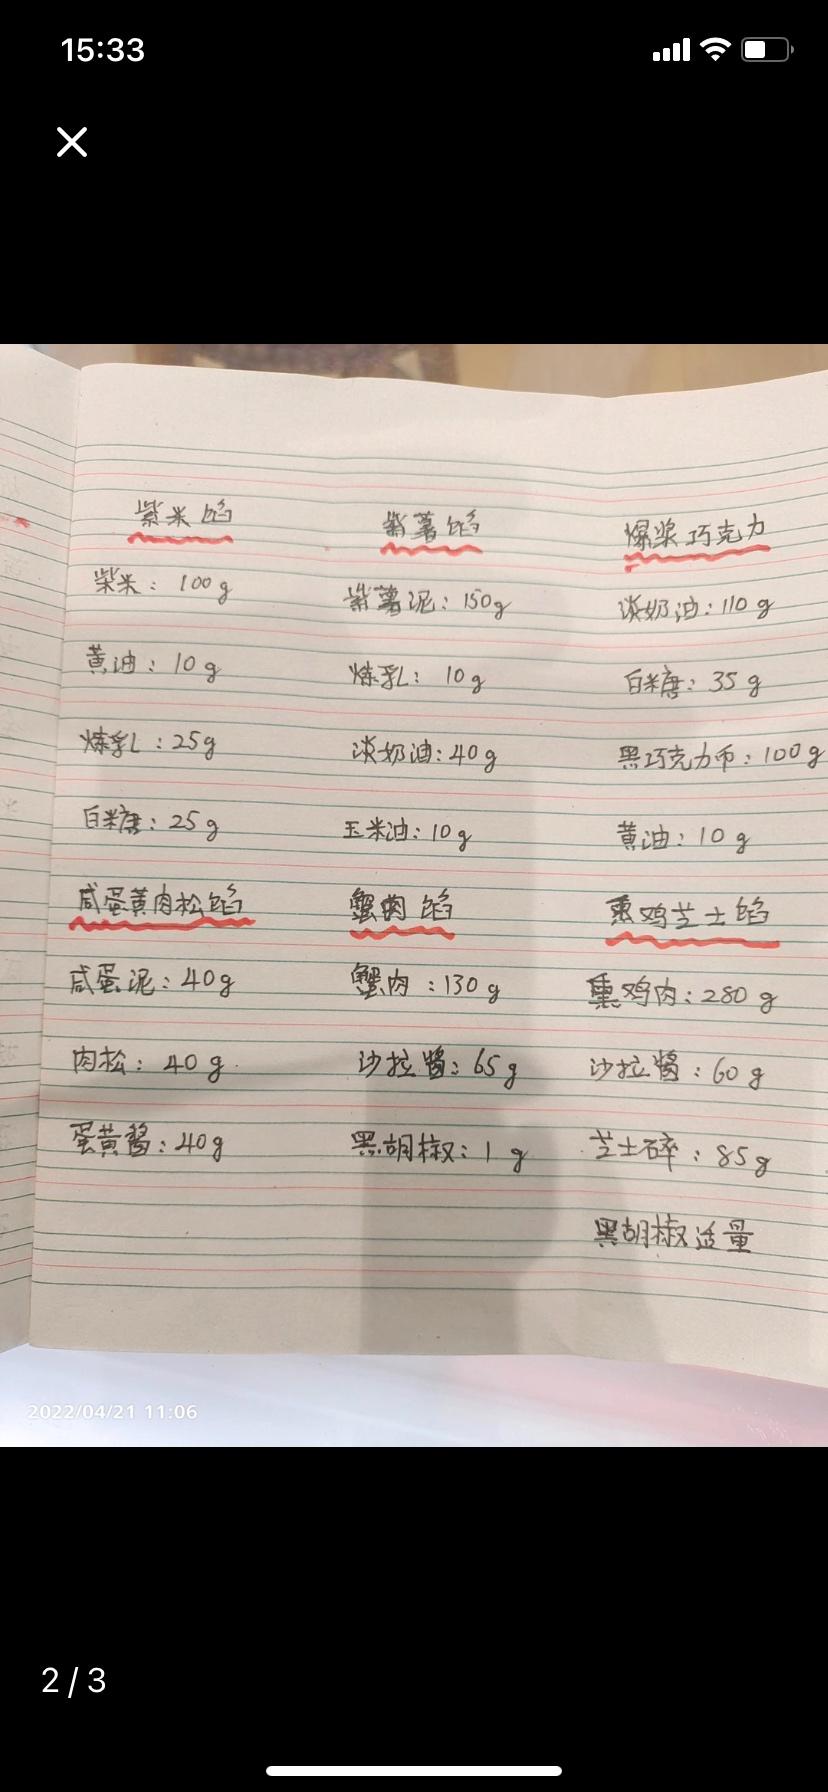 15:33
紫米馅
紫米：100g
黄油：10g
炼乳：25g
白糖：25g
紫薯馅
紫薯泥：150g
炼乳：10g
淡奶油：40g
玉米油：10g
爆浆巧克力
淡奶油：110g
白糖：35g
黑巧克力币：100g
黄油：10g
咸蛋黄肉松馅
咸蛋泥：40g
肉松：40g
蛋黄酱：40g
蟹肉馅
蟹肉：130g
沙拉酱：65g
黑胡椒：1g
熏鸡芝士馅
熏鸡肉：280g
沙拉酱：60g
芝士碎：85g
黑胡椒适量
2022/04/21 11:06
2/3